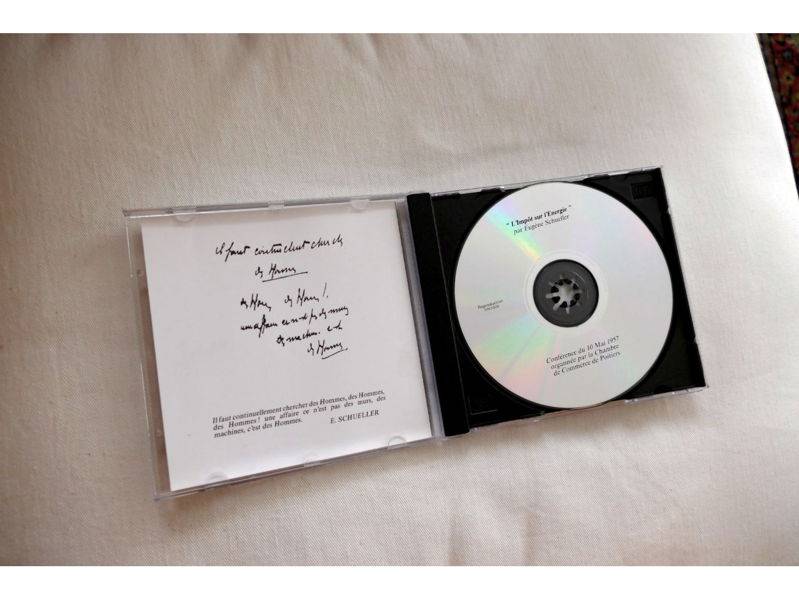 il faut continuellement chercher
des Hommes
des Hommes, des Hommes!
une affaire ce n'est pas des murs
des machines c'est
des Hommes
Il faut continuellement chercher des Hommes, des Hommes,
des Hommes ! une affaire ce n'est pas des murs, des
machines, c'est des Hommes.
E. SCHUELLER
" L'Impôt sur l'Energie "
par Eugène Schueller
Reproduction
Conférence du 10 Mai 1957
organisée par la Chambre
de Commerce de Poitiers